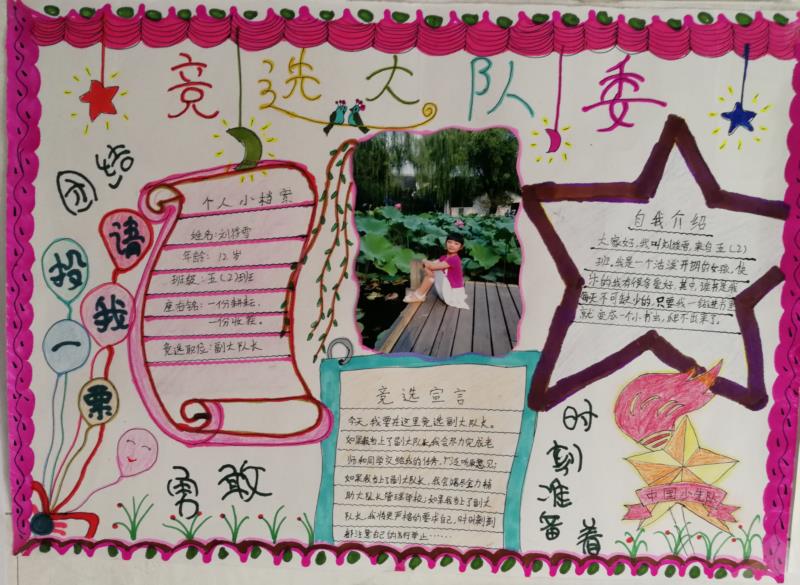 竞选大队委
团结
请
投我
一票
个人小档案
姓名:刘
年龄: 12岁
班级:五(2)班
座右铭:一份耕耘,
一份收获。
竞选职位:副大队长
自我介绍
大家好,我叫刘 来自五(2)
班,我是一个活泼开朗的女孩,快
乐的我有很多爱好,其中,读书是我
每天不可缺少的,只要我一钻进书里
就变成一个小书虫,爬不出来了。
竞选宣言
今天,我要在这里竞选副大队长。
如果我当上了副大队长,我会尽力完成老
师和同学交给我的任务,广泛听取意见;
如果我当上了副大队长,我会竭尽全力辅
助大队长管理学校;如果我当上了副大
队长,我将更严格的要求自己,时时刻刻
都注意自己的言行举止……
勇敢
时刻准备着
中国少年队